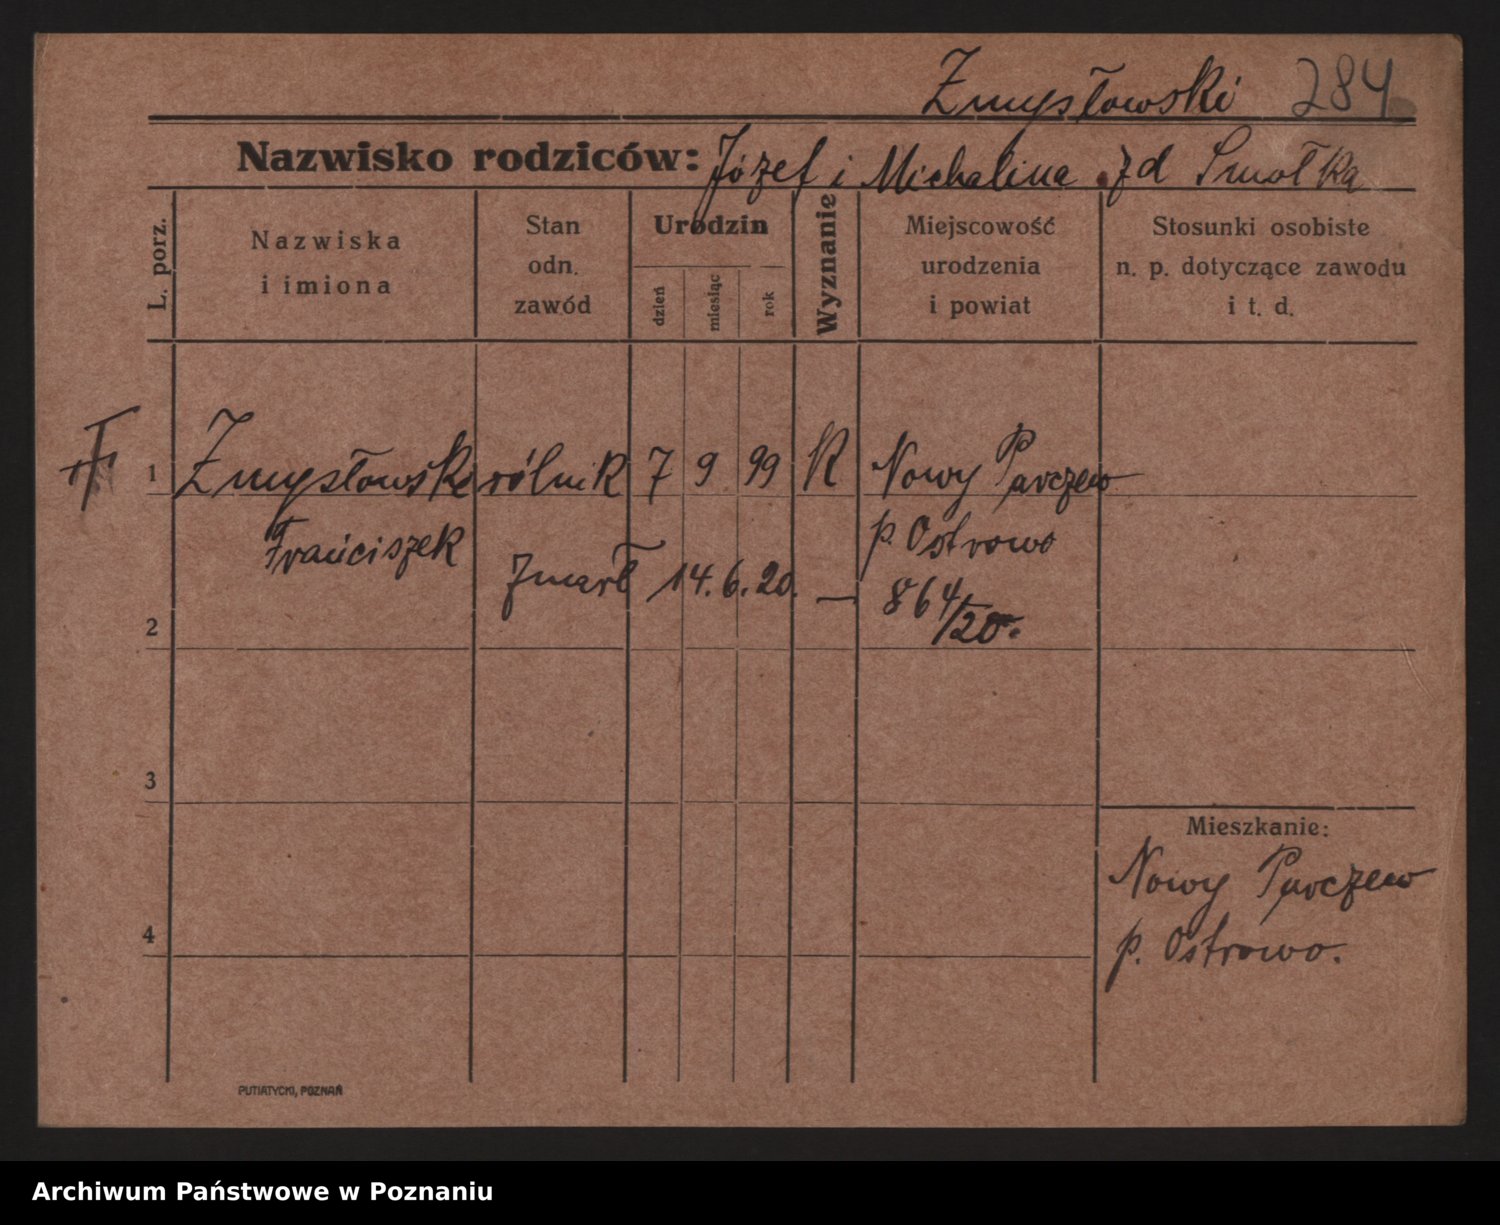 Zmysłowski 284
Nazwisko rodziców: Józef i Michalina zd Smołka
L. porz.
Nazwiska
i imiona
Stan
odn.
zawód
Urodzin
dzień
miesiąc
rok
Wyznanie
Miejscowość
urodzenia
i powiat
Stosunki osobiste
n. p. dotyczące zawodu
i t. d.
1 Zmysłowski rólnik 7 9 99 K Nowy Parczew
Franciszek p. Ostrowo
zmarł 14.6.20. — 864/20.
2
3
Mieszkanie:
Nowy Parczew
4
p. Ostrowo.
PUTIATYCKI, POZNAŃ
Archiwum Państwowe w Poznaniu